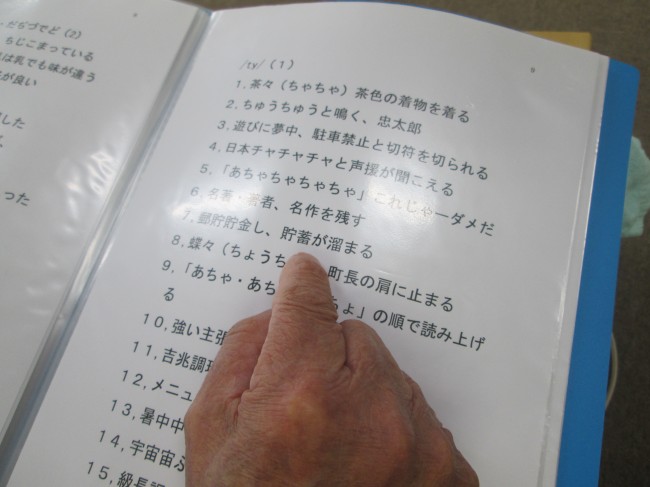 だぢづでど(2)
ちじこまっている
は乳でも味が違う
が良い
した
った
/ty/(1)
1.茶々(ちゃちゃ)茶色の着物を着る
2.ちゅうちゅうと鳴く、忠太郎
3.遊びに夢中、駐車禁止と切符を切られる
4.日本チャチャチャと声援が聞こえる
5.「あちゃちゃちゃちゃ」これじゃーダメだ
6.名著・著者、名作を残す
7.郵貯貯金し、貯蓄が溜まる
8.蝶々(ちょうち 町長の肩に止まる
9.「あちゃ・あち ちょ」の順で読み上げ
る
10.強い主張
11.吉兆調理
12.メニュ
13.暑中中
14.宇宙宙ぶ
15.級長調